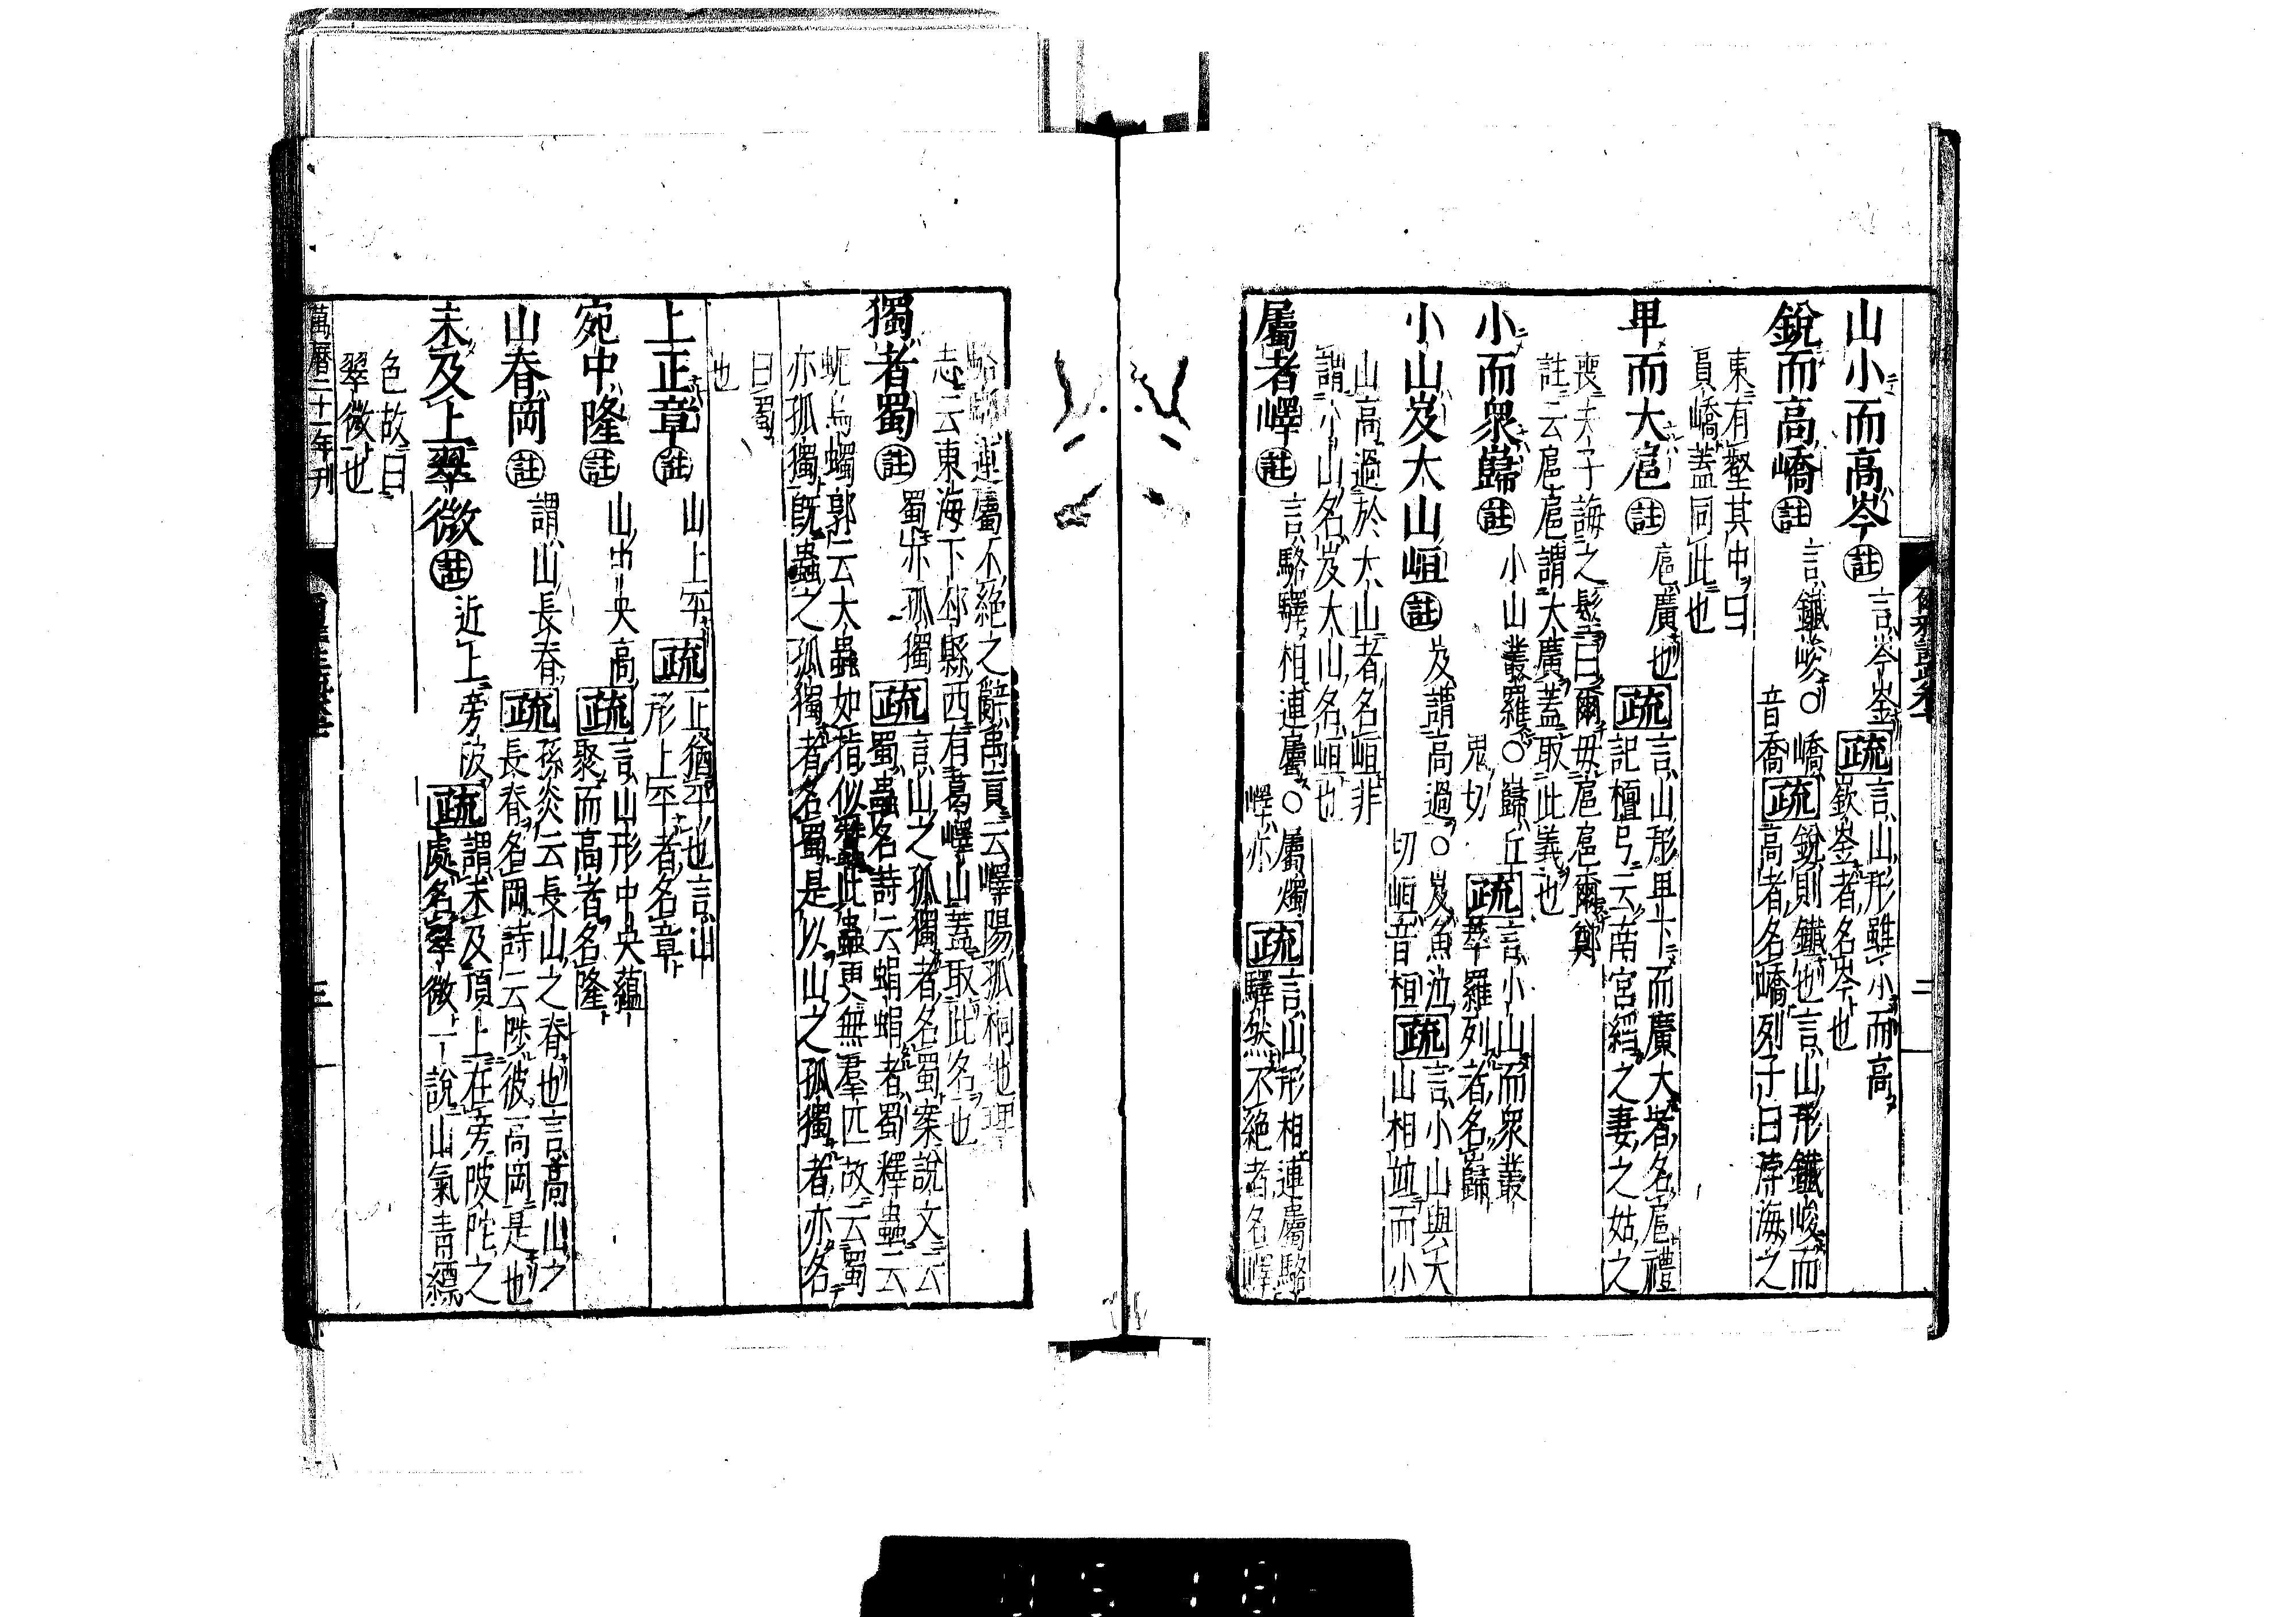 山小而高岑註言岑崟疏言山形雖小而高
欽崟者名岑也
銳而高嶠註言鑯峻○嶠
音喬疏銳則鑯也言山形鑯峻而
高者名嶠列子曰渤海之
東有壑其中曰
員嶠蓋同此也
卑而大扈註扈廣也疏言山形卑下而廣大者名扈禮
記檀弓云南宮縚之妻之姑之
喪夫子誨之髽曰爾毋扈扈爾鄭
註云扈扈謂大廣蓋取此義也
小而眾巋註小山叢羅○巋丘
鬼切疏言小山而眾叢
萃羅列者名巋
小山岌大山峘註岌謂高過○岌魚泣
切峘音桓疏言小山與大
山相並而小
山高過於大山者名峘非
謂小山名岌大山名峘也
屬者嶧註言駱驛相連屬○屬燭
嶧亦疏言山形相連屬駱
驛然不絕者名嶧
駱驛連屬不絕之辭禹貢云嶧陽孤桐地理
志云東海下邳縣西有葛嶧山蓋取此名也
獨者蜀註蜀亦孤獨疏言山之孤獨者名蜀案說文云
蜀蟲名詩云蜎蜎者蜀釋蟲云
蚅烏蠋郭云大蟲如指似蠶此蟲更無羣匹故云蜀
亦孤獨既蟲之孤獨者名蜀是以山之孤獨者亦名
曰蜀
也
上正章註山上平疏正猶平也言山
形上平者名章
宛中隆註山中央高疏言山形中央蘊
聚而高者名隆
山脊岡註謂山長脊疏孫炎云長山之脊也言高山之
長脊名岡詩云陟彼高岡是也
未及上翠微註近上旁陂疏謂未及頂上在旁陂陀之
處名翠微一說山氣青縹
色故曰
翠微也
萬曆二十一年刊
三